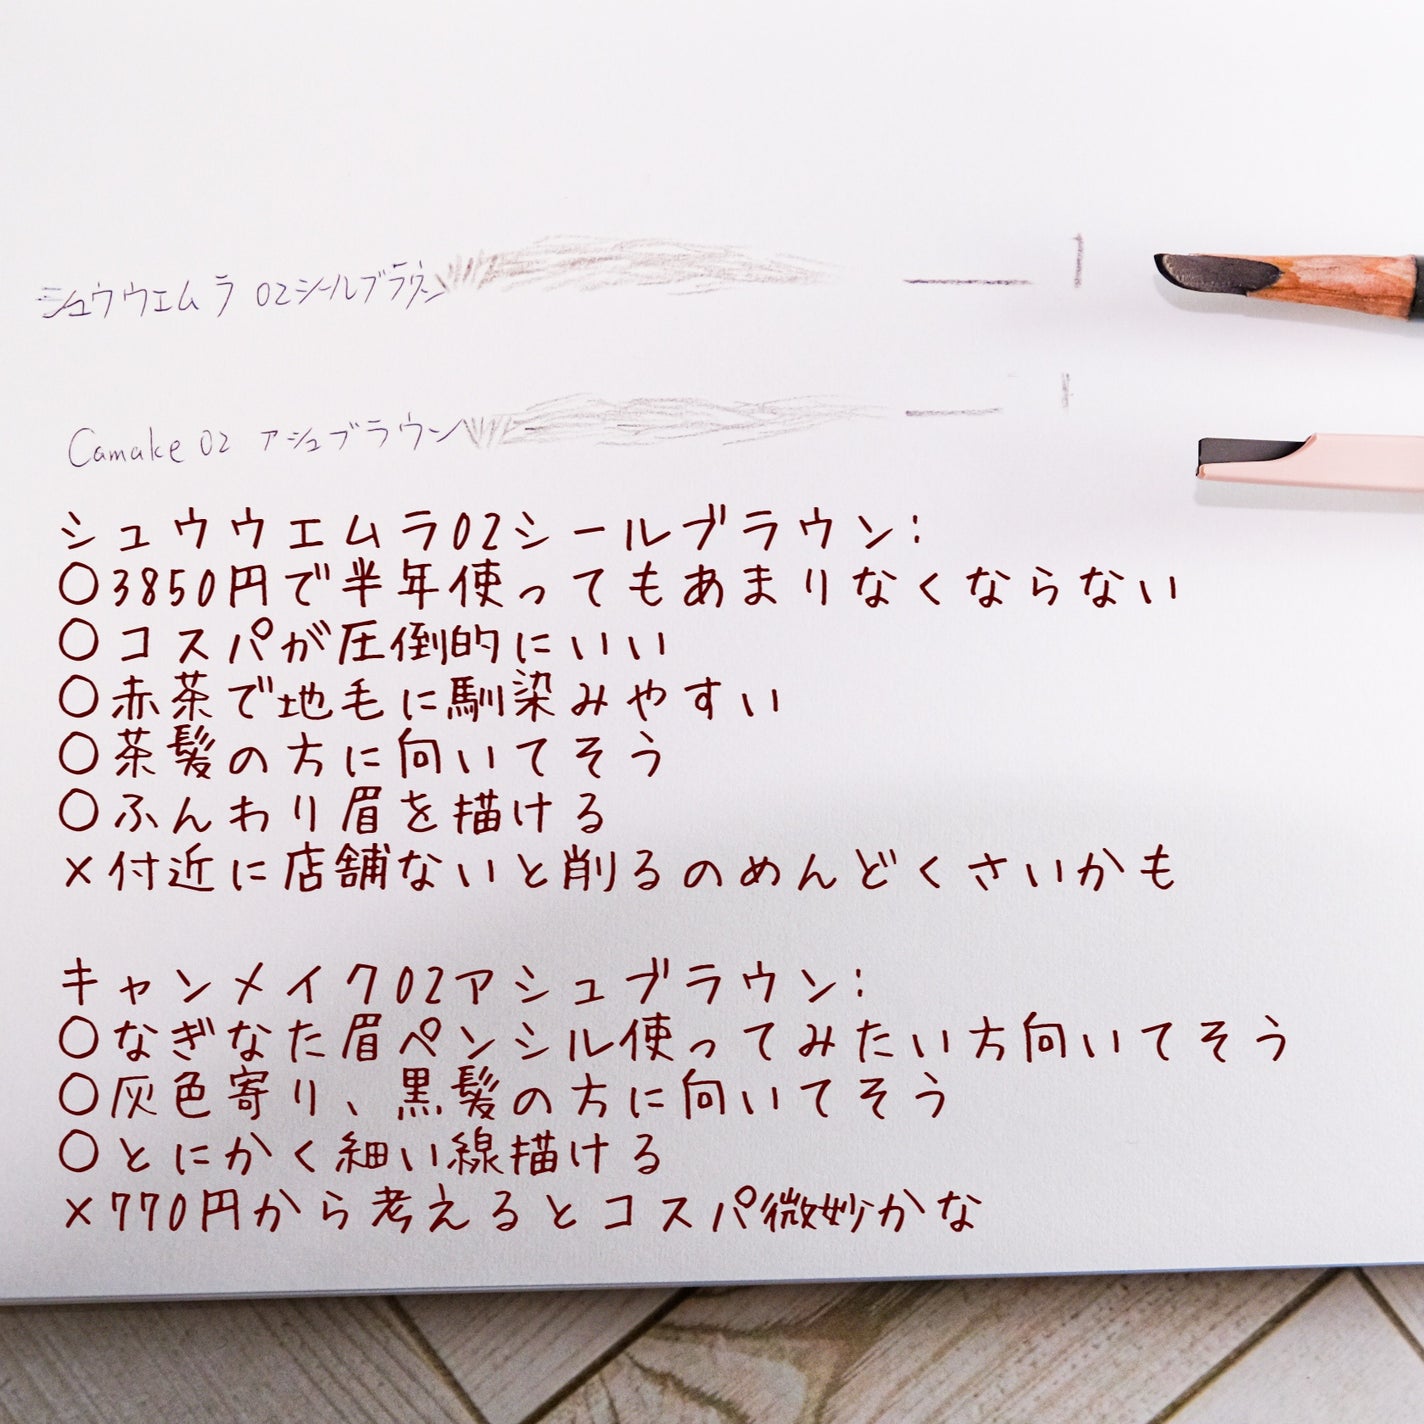 シュウウエムラ 02シールブラウン
Camake 02 アシュブラウン
シュウウエムラ02シールブラウン:
〇3850円で半年使ってもあまりなくならない
〇コスパが圧倒的にいい
〇赤茶で地毛に馴染みやすい
〇茶髪の方に向いてそう
〇ふんわり眉を描ける
×付近に店舗ないと削るのめんどくさいかも
キャンメイク02アシュブラウン:
〇なぎなた眉ペンシル使ってみたい方向いてそう
〇灰色寄り、黒髪の方に向いてそう
〇とにかく細い線描ける
×770円から考えるとコスパ微妙かな